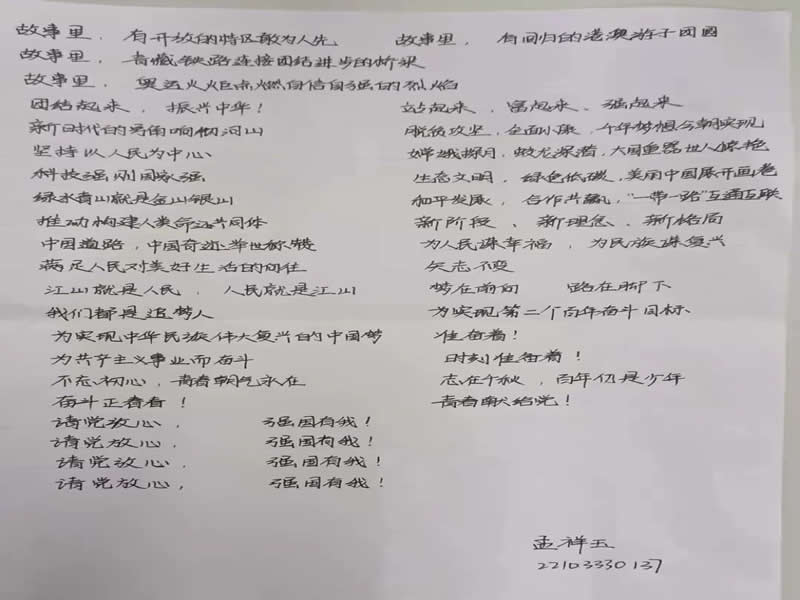 故事里，有开放的特区敢为人先　故事里，有回归的港澳游子团圆
故事里，青藏铁路连接团结进步的桥梁
故事里，奥运火炬点燃自信自强的烈焰
团结起来，振兴中华！　站起来、富起来、强起来
新时代的号角响彻河山　脱贫攻坚，全面小康，千年梦想今朝实现
坚持以人民为中心　嫦娥探月，蛟龙深潜，大国重器世人惊艳
科技强则国家强　生态文明，绿色低碳，美丽中国展开画卷
绿水青山就是金山银山　和平发展，合作共赢，“一带一路”互通互联
推动构建人类命运共同体　新阶段、新理念、新格局
中国道路，中国奇迹举世称赞　为人民谋幸福，为民族谋复兴
满足人民对美好生活的向往　矢志不变
江山就是人民，人民就是江山　梦在前向　路在脚下
我们都是追梦人　为实现第二个百年奋斗目标、
为实现中华民族伟大复兴的中国梦　准备着！
为共产主义事业而奋斗　时刻准备着！
不忘初心，青春朝气永在　志在千秋，百年仍是少年
奋斗正青春！　青春献给党！
请党放心，强国有我！
请党放心，强国有我！
请党放心，强国有我！
请党放心，强国有我！
孟祥玉
22103330137